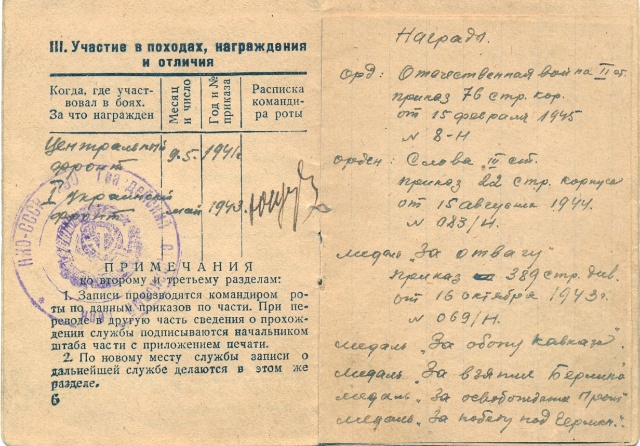 III. Участие в походах, награждения
и отличия
Когда, где участ-
вовал в боях.
За что награжден
Месяц
и число
Год и №
приказа
Расписка
команди-
ра роты
Центральный
фронт
9.5. 1941г.
I Украинский
фронт
май 1943.
НКО-СССР
ПРИМЕЧАНИЯ
ко второму и третьему разделам:
1. Записи производятся командиром ро-
ты по данным приказов по части. При пе-
реводе в другую часть сведения о прохож-
дении службы подписываются начальником
штаба части с приложением печати.
2. По новому месту службы записи о
дальнейшей службе делаются в этом же
разделе.
6
Награды.
орд: Отечественная война II ст.
приказ 76 стр. кор.
от 15 февраля 1945
N 8-Н
орден: Слава III ст.
приказ 22 стр. корпуса
от 15 августа 1944.
N 083/Н.
медаль „За отвагу"
приказ 389 стр. див.
от 16 октября 1943г.
N 069/Н.
медаль „За оборону Кавказа".
медаль „За взятие Берлина
медаль „За освобождение Праги
медаль „За победу над Герман."